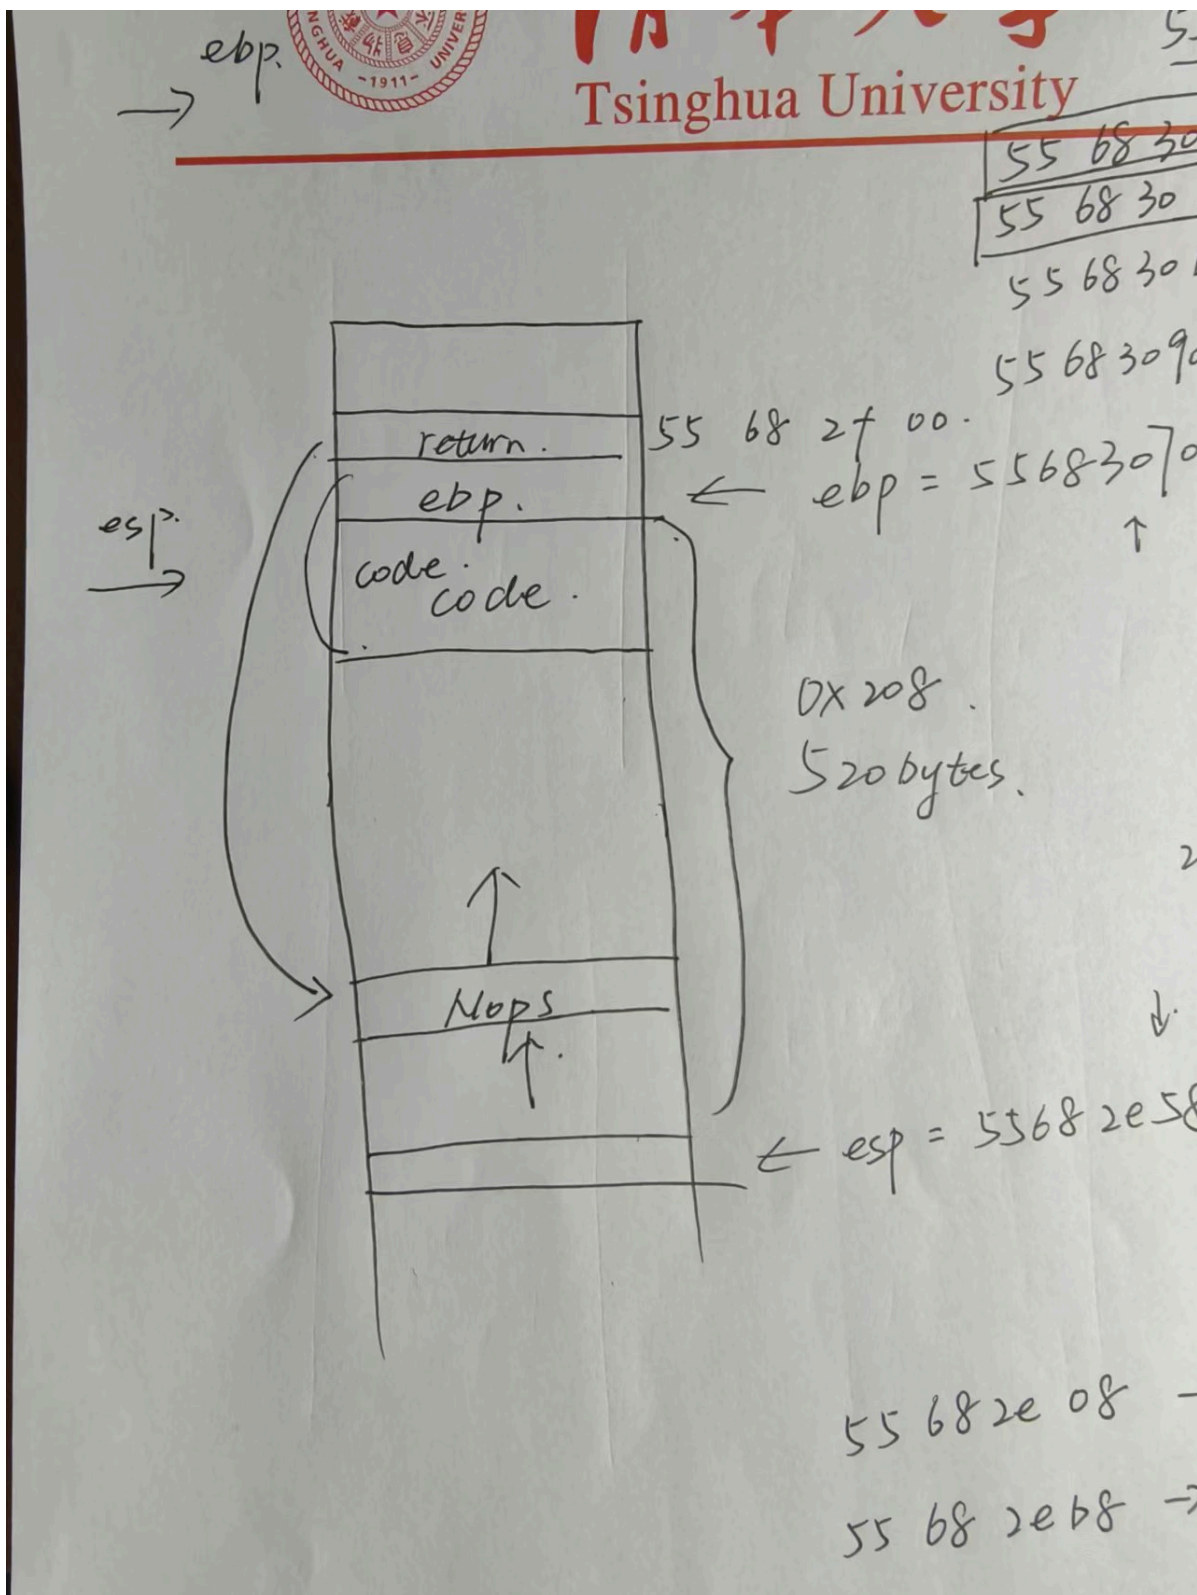 ebp.
NGHUA -1911- UNIVER
清华大学
Tsinghua University
55 68 30
55 68 30
55 68 30
55 68 30 90
return.
55 68 2f 00.
ebp.
← ebp = 55683070
↑
esp.
code.
code.
0x208.
520 bytes.
Nops
← esp = 55682e58
55 68 2e 08
55 68 2eb8